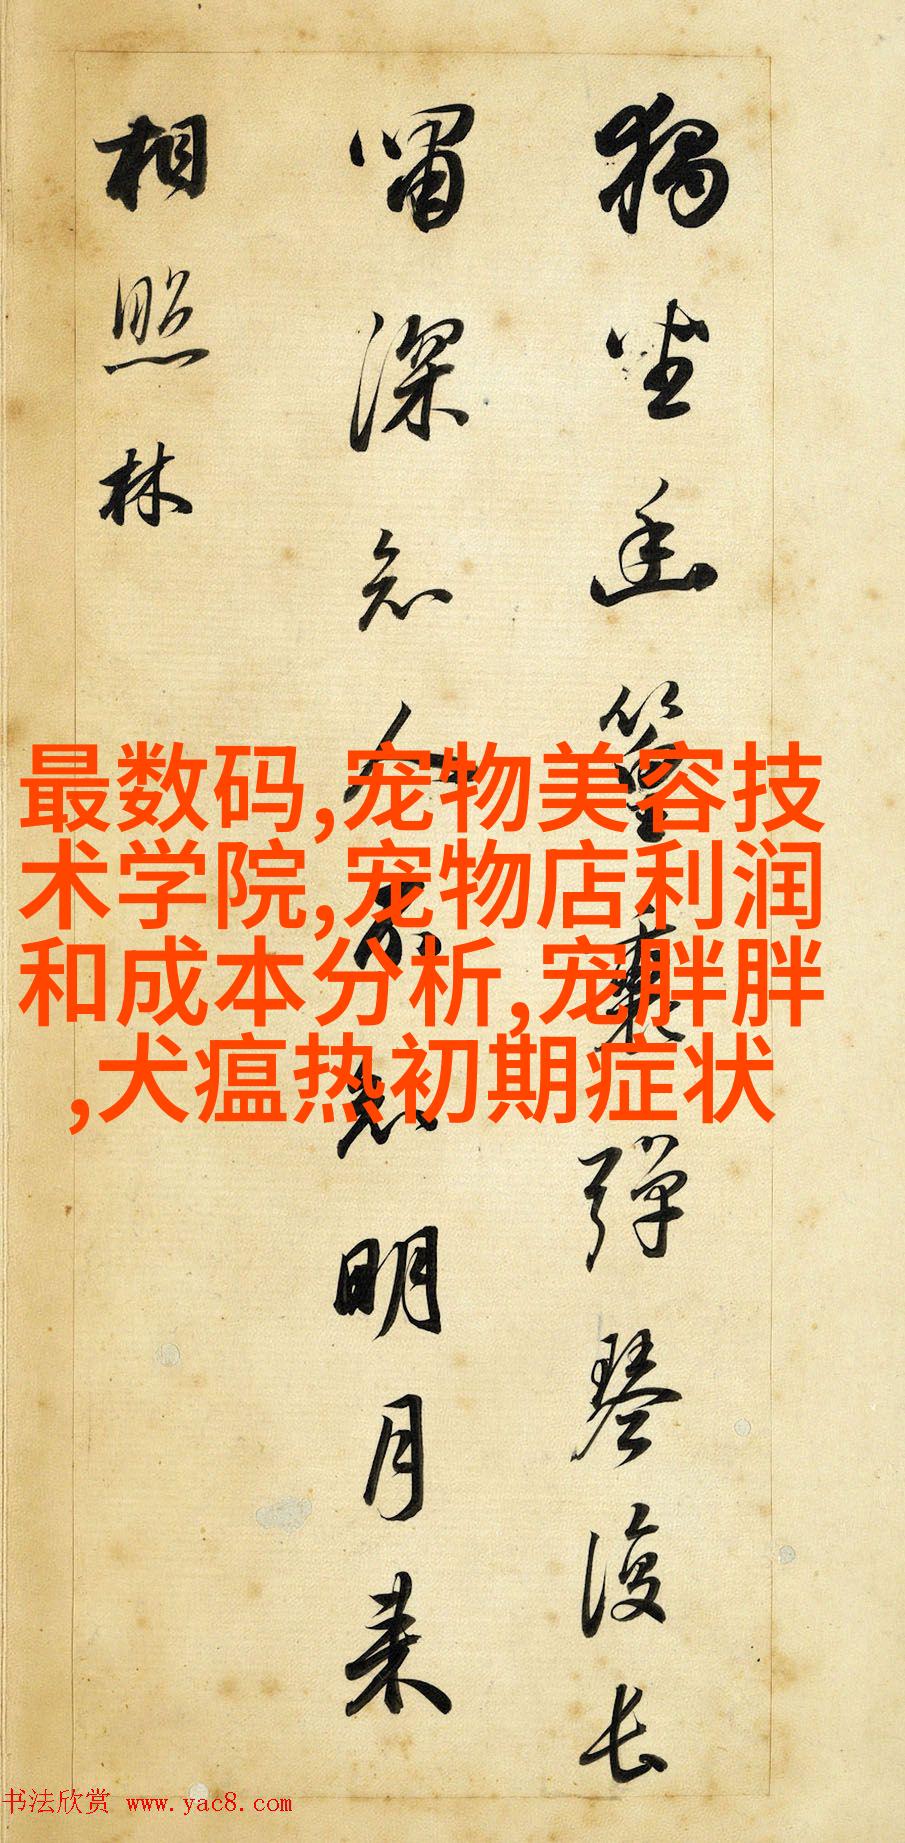 獨坐幽篁裏彈琴復長
嘯深知人不知明月来
相照林
最数码,宠物美容技
术学院,宠物店利润
和成本分析,宠胖胖
,犬瘟热初期症状
书法欣赏 www.yac8.com